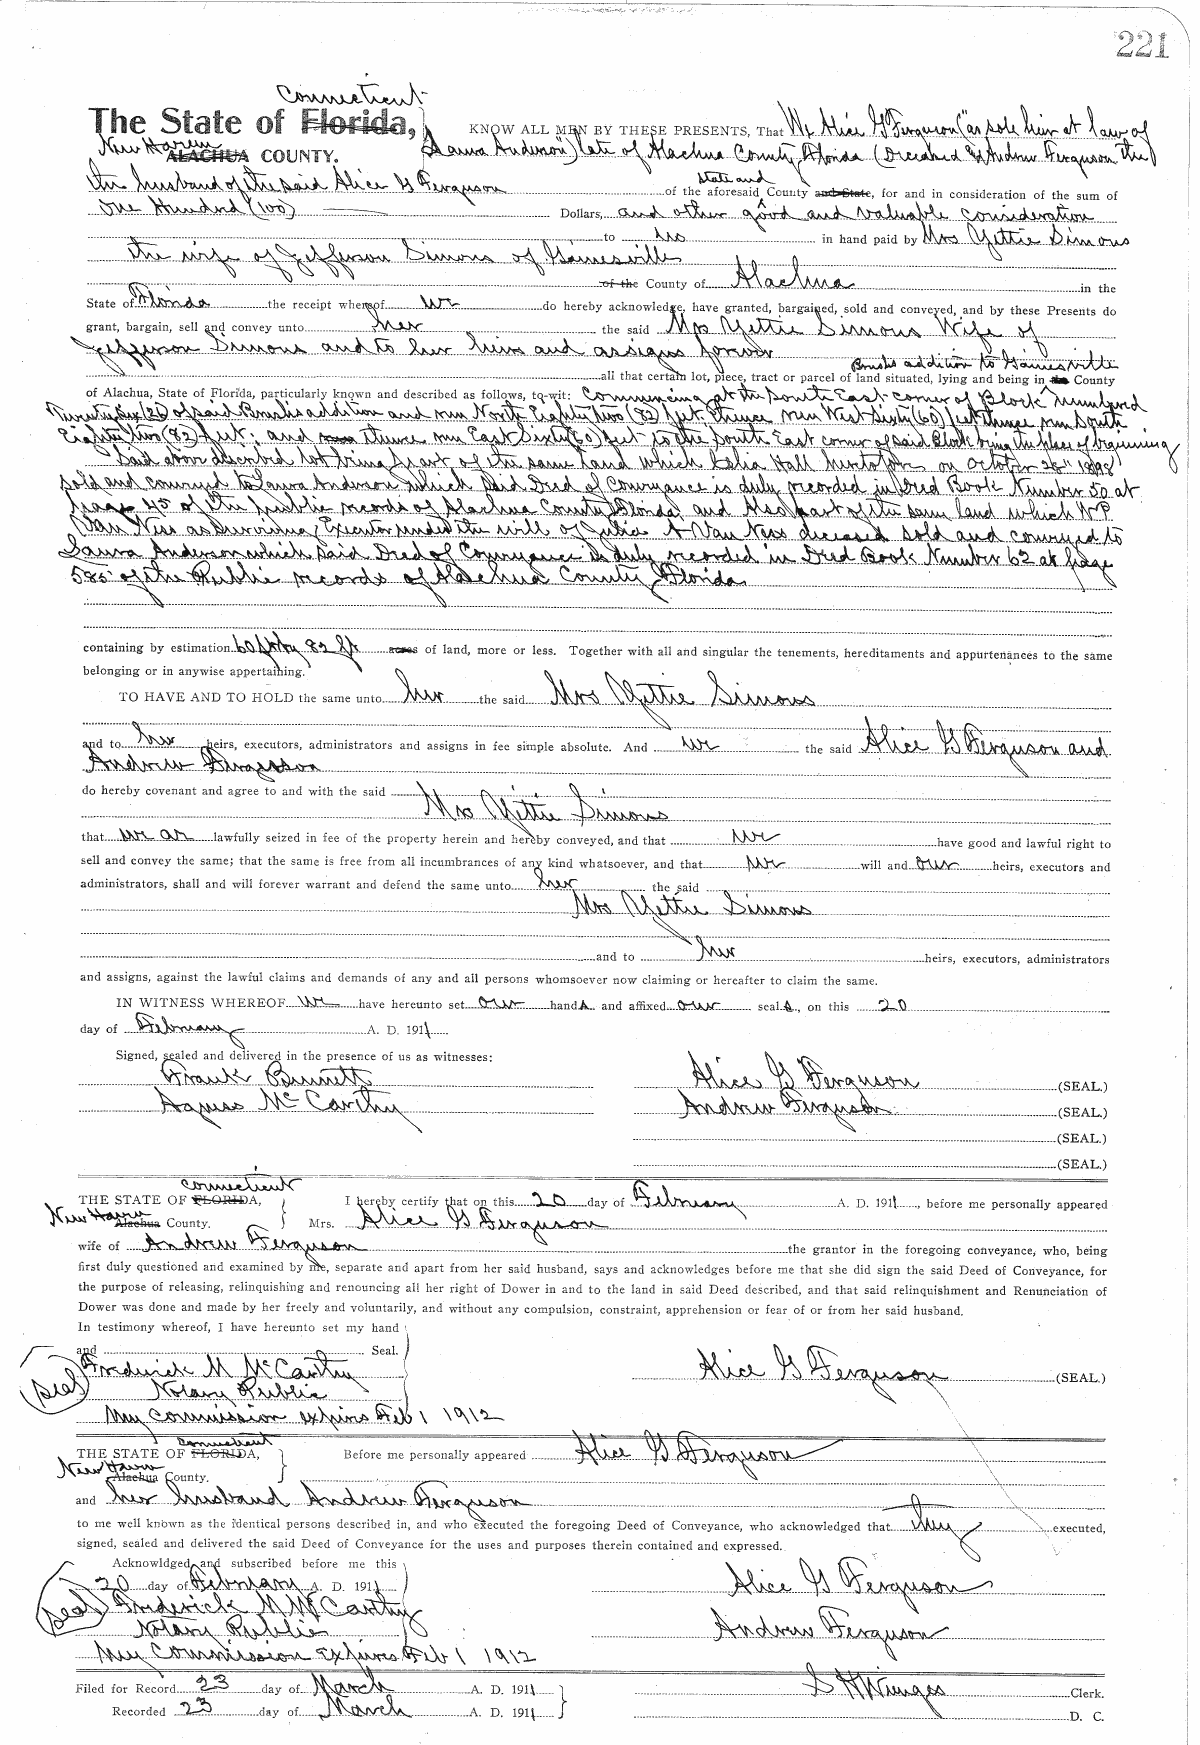 221
Connecticut
The State of Florida,
KNOW ALL MEN BY THESE PRESENTS, That We Alice G Ferguson (as sole heir at law of
New Haven
ALACHUA COUNTY.
Laura Anderson) late of Alachua County Florida (Deceased & Andrew Ferguson the
the husband of the said Alice G Ferguson of the aforesaid state and County and State, for and in consideration of the sum of
One Hundred (100) Dollars, and other good and valuable consideration
to us in hand paid by Mrs Yettie Simons
the wife of Jefferson Simons of Gainesville
of the County of Alachua in the
State of Florida the receipt whereof we do hereby acknowledge, have granted, bargained, sold and conveyed, and by these Presents do
grant, bargain, sell and convey unto her the said Mrs Yettie Simons Wife of
Jefferson Simons and to her heirs and assigns forever
all that certain lot, piece, tract or parcel of land situated, lying and being in the Brushs addition to Gainesville County
of Alachua, State of Florida, particularly known and described as follows, to-wit: Commencing at the South East corner of Block numbered
Twenty Six (26) of said Brushs addition and run North Eighty two (82) feet, thence run West Sixty (60) feet thence run South
Eighty two (82) feet; and thence run East Sixty (60) feet to the South East corner of said Block being the place of beginning
Said above described lot being part of the same land which Celia Hall heretofore on October 28" 1898
sold and conveyed to Laura Anderson which said Deed of Conveyance is duly recorded in Deed Book Number 50 at
page 45 of the public records of Alachua County Florida and Also part of the same land which W P
Van Ness as Surviving Executor under the will of Julia A Van Ness deceased sold and conveyed to
Laura Anderson which said Deed of Conveyance is duly recorded in Deed Book Number 62 at page
585 of the Public records of Alachua County Florida
containing by estimation 60 ft by 82 ft acres of land, more or less. Together with all and singular the tenements, hereditaments and appurtenances to the same
belonging or in anywise appertaining.
TO HAVE AND TO HOLD the same unto her the said Mrs Yettie Simons
and to her heirs, executors, administrators and assigns in fee simple absolute. And we the said Alice G Ferguson and
Andrew Ferguson
do hereby covenant and agree to and with the said
Mrs Yettie Simons
that we are lawfully seized in fee of the property herein and hereby conveyed, and that we have good and lawful right to
sell and convey the same; that the same is free from all incumbrances of any kind whatsoever, and that we will and our heirs, executors and
administrators, shall and will forever warrant and defend the same unto her the said
Mrs Yettie Simons
and to her heirs, executors, administrators
and assigns, against the lawful claims and demands of any and all persons whomsoever now claiming or hereafter to claim the same.
IN WITNESS WHEREOF we have hereunto set our hands and affixed our seals, on this 20
day of February A. D. 1911
Signed, sealed and delivered in the presence of us as witnesses:
Frank Burnett Alice G Ferguson (SEAL.)
Agness McCarthy Andrew Ferguson (SEAL.)
(SEAL.)
(SEAL.)
Connecticut
THE STATE OF FLORIDA, I hereby certify that on this 20 day of February A. D. 1911, before me personally appeared
New Haven
Alachua County. Mrs. Alice G Ferguson
wife of Andrew Ferguson the grantor in the foregoing conveyance, who, being
first duly questioned and examined by me, separate and apart from her said husband, says and acknowledges before me that she did sign the said Deed of Conveyance, for
the purpose of releasing, relinquishing and renouncing all her right of Dower in and to the land in said Deed described, and that said relinquishment and Renunciation of
Dower was done and made by her freely and voluntarily, and without any compulsion, constraint, apprehension or fear of or from her said husband.
In testimony whereof, I have hereunto set my hand
and Seal.
(Seal) Frederick M McCarthy Alice G Ferguson (SEAL.)
Notary Public
My commission expires Feb 1 1912
Connecticut
THE STATE OF FLORIDA, Before me personally appeared Alice G Ferguson
New Haven
Alachua County.
and her husband Andrew Ferguson
to me well known as the identical persons described in, and who executed the foregoing Deed of Conveyance, who acknowledged that they executed,
signed, sealed and delivered the said Deed of Conveyance for the uses and purposes therein contained and expressed.
Acknowldged and subscribed before me this
20 day of February A. D. 1911 Alice G Ferguson
(Seal) Frederick M McCarthy
Notary Public Andrew Ferguson
My Commission Expires Feb 1 1912
Filed for Record 23 day of March A. D. 1911 S H Wienges Clerk.
Recorded 23 day of March A. D. 1911 D. C.